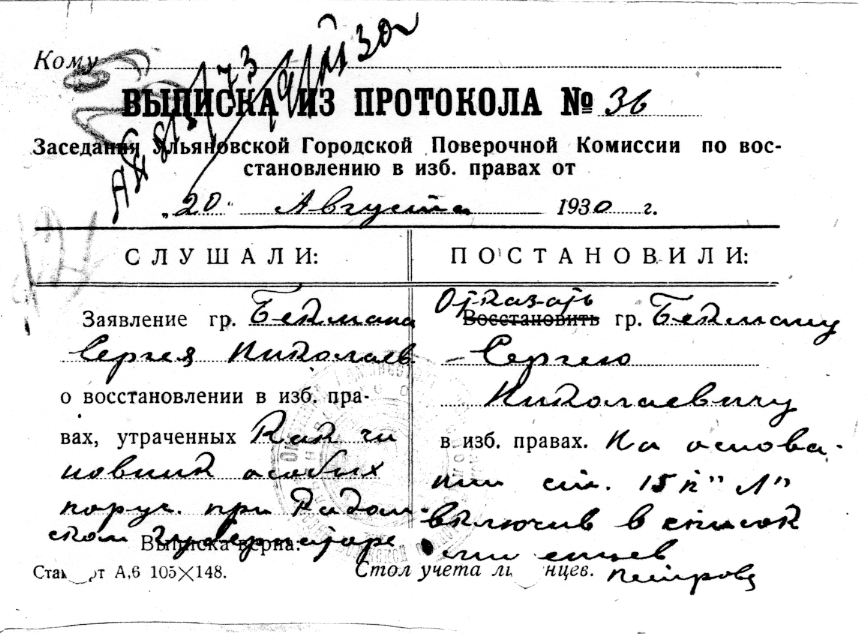 Кому
ВЫПИСКА ИЗ ПРОТОКОЛА № 36
Заседания Ульяновской Городской Поверочной Комиссии по вос-
становлению в изб. правах от
„20" Августа 1930 г.
СЛУШАЛИ:
Заявление гр. Бекмана
Сергея Николаев.
о восстановлении в изб. пра-
вах, утраченных Как чи
новник особых
поруч. при Радом-
ском губернаторе
Выписка верна:
Стандарт А,6 105×148.
ПОСТАНОВИЛИ:
Отказать
Восстановить гр. Бекману
Сергею
Николаевичу
в изб. правах. На основа-
нии ст. 15 п "Л"
включив в список
лишенцев
Стол учета лишенцев.